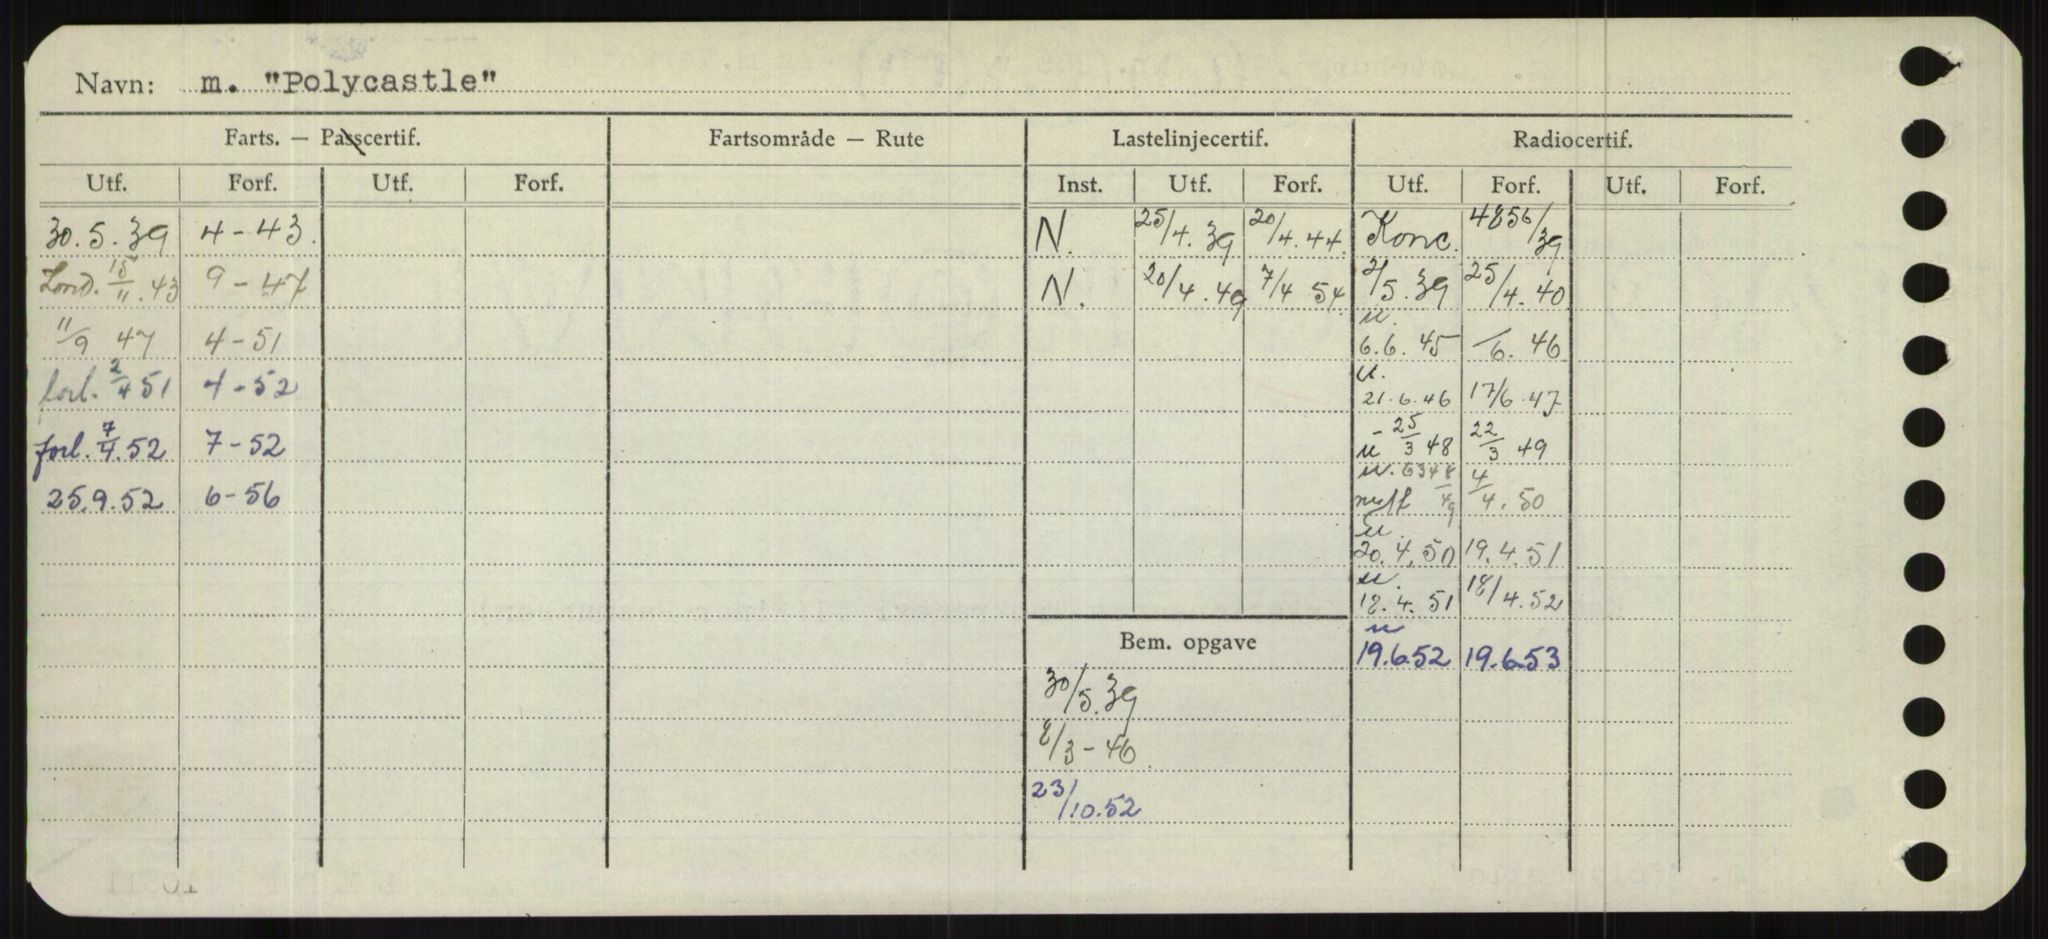 Navn: m. "Polycastle"
Farts. — Passcertif. Fartsområde — Rute Lastelinjecertif. Radiocertif.
Utf. Forf. Utf. Forf. Inst. Utf. Forf. Utf. Forf. Utf. Forf.
30.5.39 4-43. N. 25/4.39 20/4.44. Konc. 4856/39
Lond. 15/11.43 9-47 N. 20/4.49 7/4 54 2/5.39 25/4.40
11/9 47 4-51 u. 6.6.45 /6.46
forl. 2/4 51 4-52 u. 21.6.46 17/6.47
forl. 7/4.52 7-52 u - 25/3 48 22/3 49
25.9.52 6-56 4/4.50
u 20.4.50 19.4.51
u. 18.4.51 18/4.52
Bem. opgave u 19.6.52 19.6.53
30/5.39
8/3-46
23/10.52